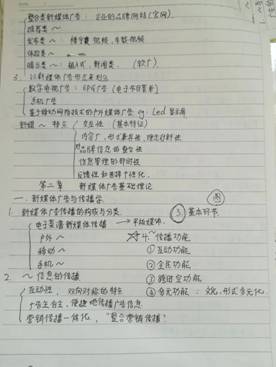 整合类新媒体广告：企业的品牌网站（官网）
推荐类～
发布类～：楼宇类视频，车载视频
体验类～
暗示类～：植入式，新闻类．（软广）
3. 以新媒体广告形式来划分
数字电视广告：EPG广告（电子节目菜单）
手机广告
基于移动网络技术的户外媒体广告 eg：Led显示屏
新媒～特点 交互性（基本特征）
内容广，形式兼容性，理念创新性
品牌信息的整合性
信息管理的即时性
第二章 新媒体广告基础理论
一、新媒体广告与传播学
1. 新媒体广告传播的构成与分类 ③ 基本环节
电子菜谱新媒体传播 → 平板媒体
户外～ 4. ～传播功能
移动～ ① 互动功能
手机～ ② 全民功能
2. ～信息的传播 ③ 跨时空功能
互动性，双向对称的特点 ④ 多元功能：文化，形式多元化
广告主自主，便捷地传播广告信息
营销传播一体化，“整合营销传播”